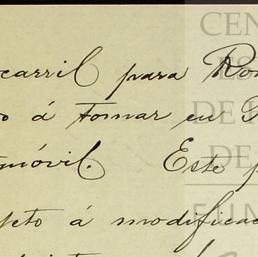 carril para Ro
o á tomar en
móvil. Este p
jeto á modificac
CEN
ES
DE
DE